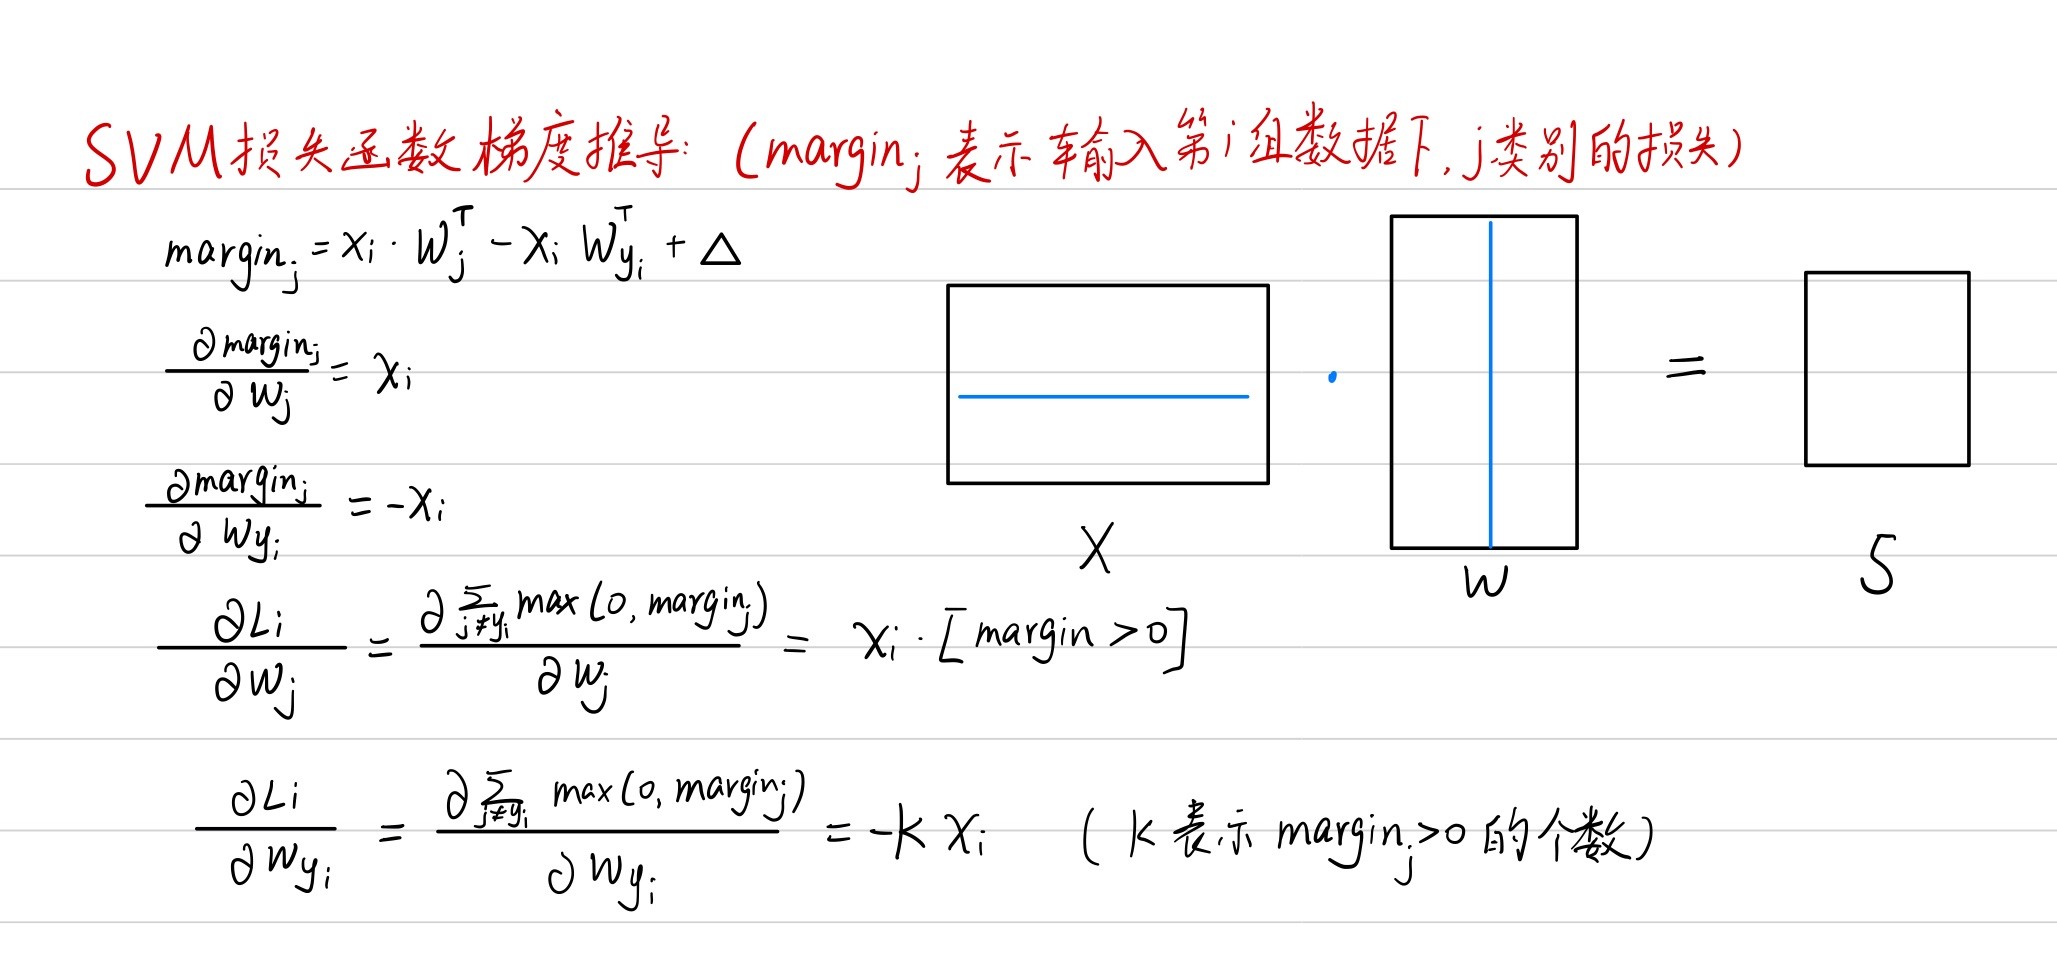 SVM损失函数梯度推导: (margin_j 表示输入第i组数据下, j类别的损失)
margin_j = x_i · W_j^T - x_i W_{y_i}^T + △
∂margin_j / ∂W_j = x_i
∂margin_j / ∂W_{y_i} = -x_i
X · W = S
∂L_i / ∂W_j = ∂ Σ_{j≠y_i} max(0, margin_j) / ∂W_j = x_i · [margin > 0]
∂L_i / ∂W_{y_i} = ∂ Σ_{j≠y_i} max(0, margin_j) / ∂W_{y_i} = -K x_i (K 表示 margin_j>0 的个数)